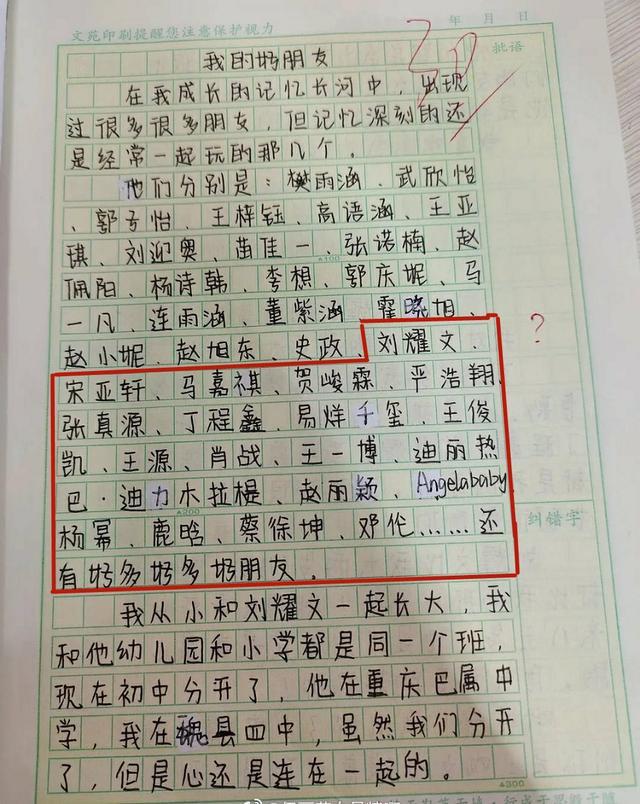 文苑印刷提醒您注意保护视力
年 月 日
30
批语
我的好朋友
在我成长的记忆长河中，出现
过很多很多朋友，但记忆深刻的还
是经常一起玩的那几个。
他们分别是：樊雨涵、武欣怡
、郭子怡、王梓钰、高语涵、王亚
琪、刘迎奥、苗佳一、张诺楠、赵
佩阳、杨诗韩、李想、郭庆妮、马
一凡、连雨涵、董紫涵、霍晓旭、
赵小妮、赵旭东、史政、刘耀文、
?
宋亚轩、马嘉祺、贺峻霖、严浩翔、
张真源、丁程鑫、易烊千玺、王俊
凯、王源、肖战、王一博、迪丽热
巴·迪力木拉提、赵丽颖、Angelababy
杨幂、鹿晗、蔡徐坤、邓伦……还
有好多好多好朋友。
纠错字
我从小和刘耀文一起长大，我
和他幼儿园和小学都是同一个班，
现在初中分开了，他在重庆巴属中
学，我在魏县四中，虽然我们分开
了，但是心还是连在一起的。